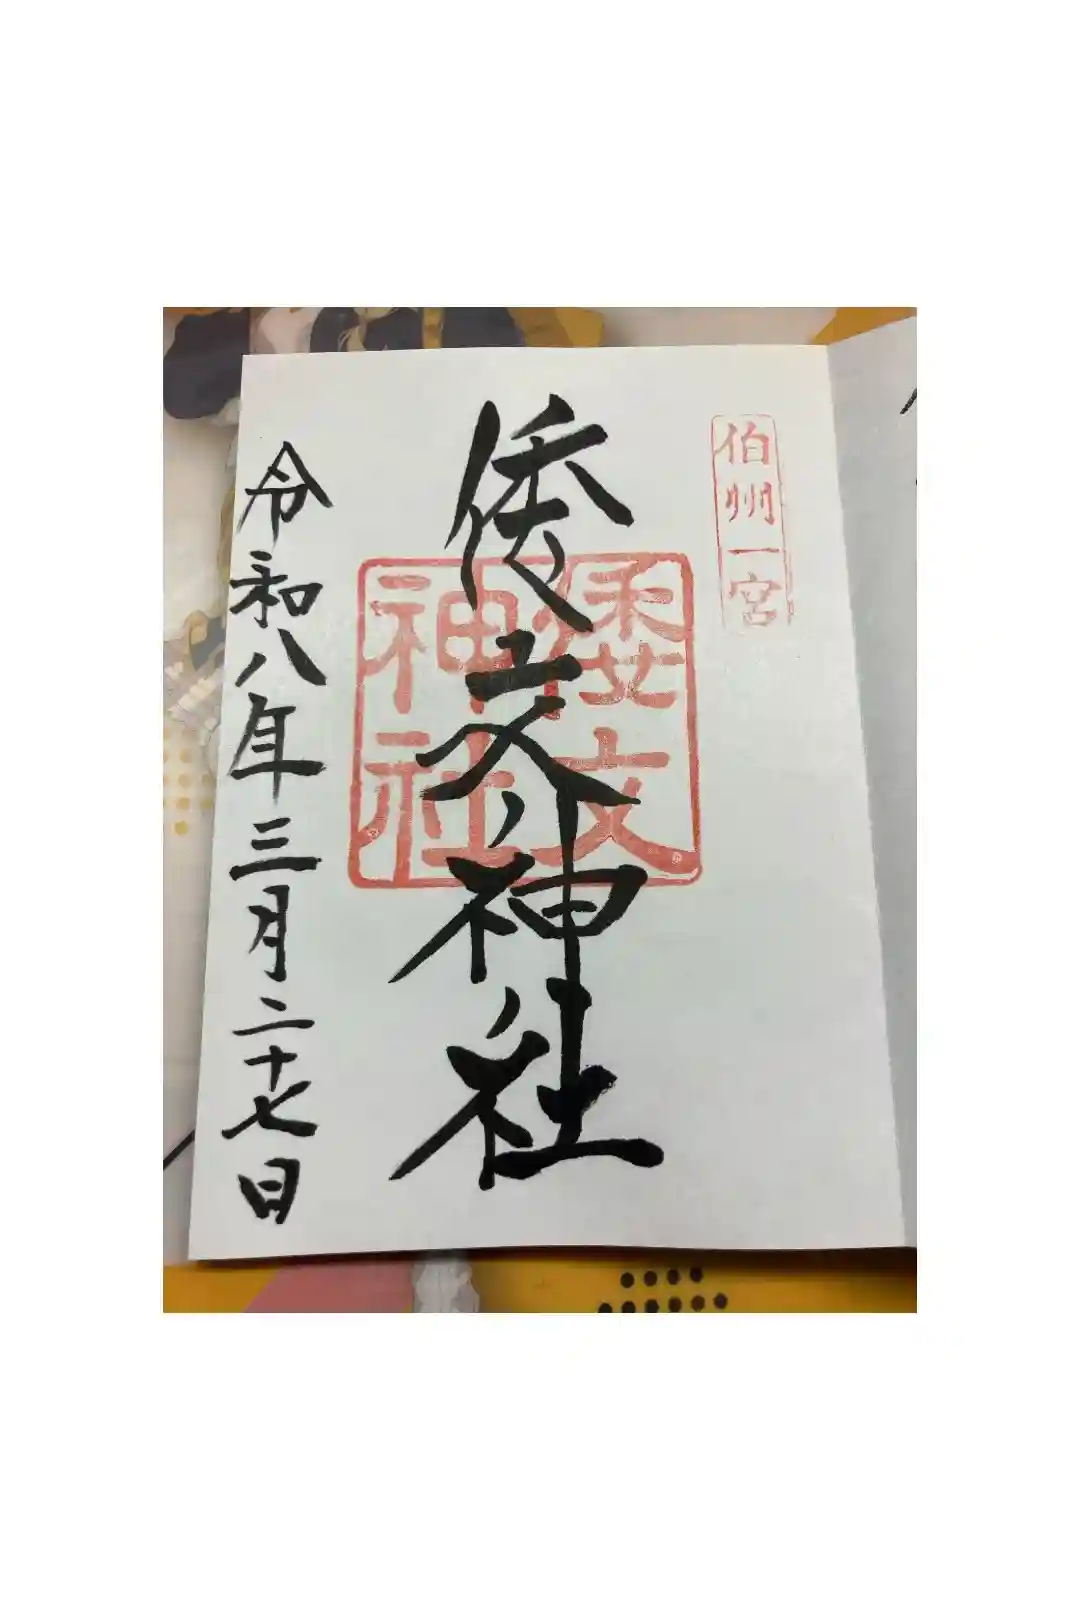 伯州一宮
倭文神社
倭文神社
令和八年三月二十七日